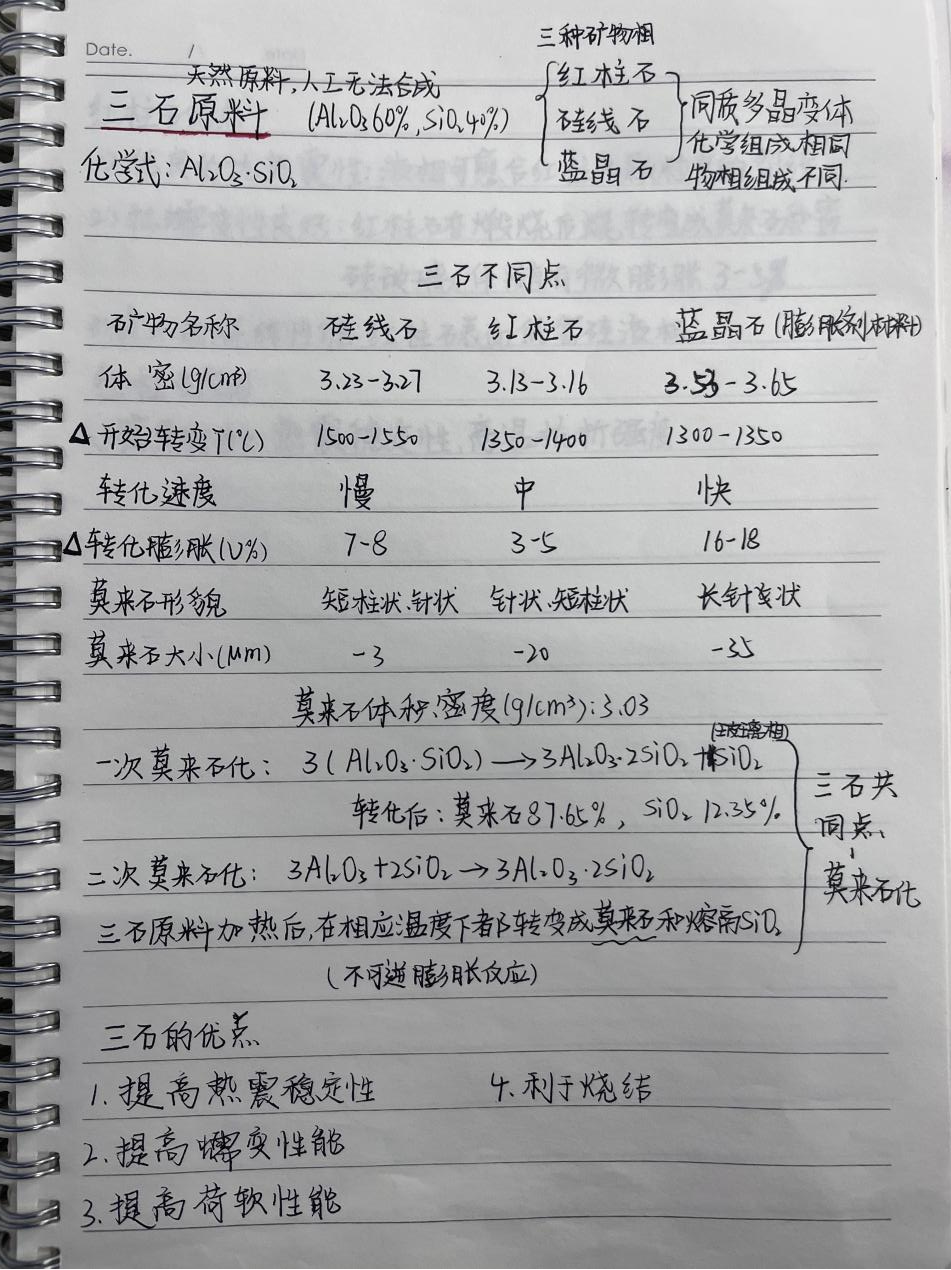 Date. /
三种矿物相
天然原料,人工无法合成
三石原料 (Al₂O₃60%, SiO₂40%)
红柱石
硅线石
蓝晶石
同质多晶变体
化学组成相同
物相组成不同.
化学式: Al₂O₃·SiO₂
三石不同点
矿物名称 硅线石 红柱石 蓝晶石(膨胀剂材料)
体密(g/cm³) 3.23-3.27 3.13-3.16 3.53-3.65
△开始转变T(℃) 1500-1550 1350-1400 1300-1350
转化速度 慢 中 快
△转化膨胀(V%) 7-8 3-5 16-18
莫来石形貌 短柱状、针状 针状、短柱状 长针状
莫来石大小(μm) -3 -20 -35
莫来石体积密度(g/cm³):3.03
(玻璃相)
一次莫来石化: 3(Al₂O₃·SiO₂)→3Al₂O₃·2SiO₂+SiO₂
转化后:莫来石87.65%, SiO₂ 12.35%
二次莫来石化: 3Al₂O₃+2SiO₂→3Al₂O₃·2SiO₂
三石原料加热后,在相应温度下都转变成莫来石和熔高SiO₂
(不可逆膨胀反应)
三石共
同点、
莫来石化
三石的优点
1.提高热震稳定性 4.利于烧结
2.提高蠕变性能
3.提高荷软性能